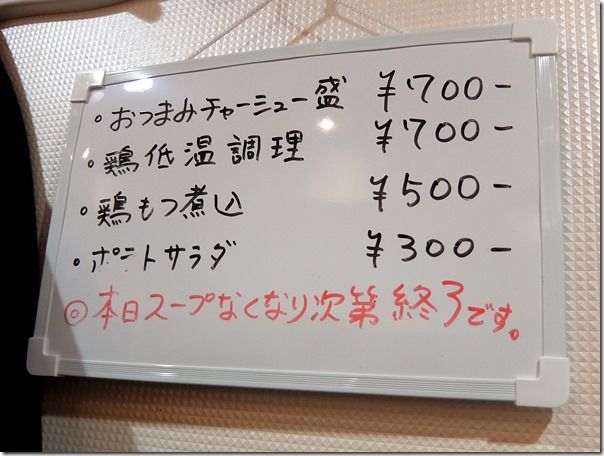 ・おつまみチャーシュー盛 ¥700-
・鶏低温調理 ¥700-
・鶏もつ煮込 ¥500-
・ポテトサラダ ¥300-
◎本日スープなくなり次第終了です。